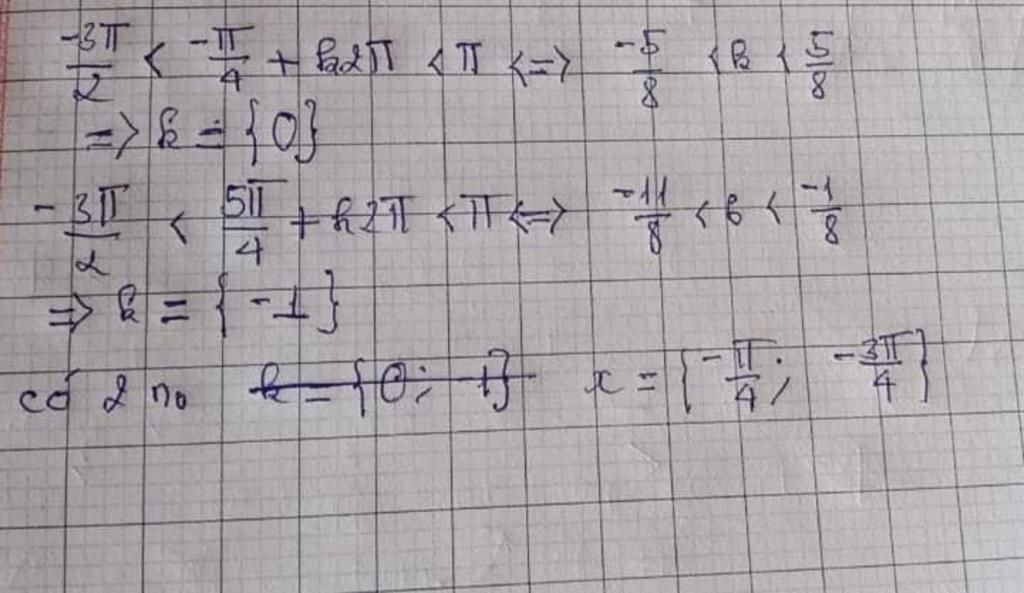 -3π/2 < -π/4 + k2π < π <=> -5/8 < k < 5/8
=> k = {0}
-3π/2 < 5π/4 + k2π < π <=> -11/8 < k < -1/8
=> k = {-1}
có 2 no k = {0; -1} x = {-π/4; -3π/4}